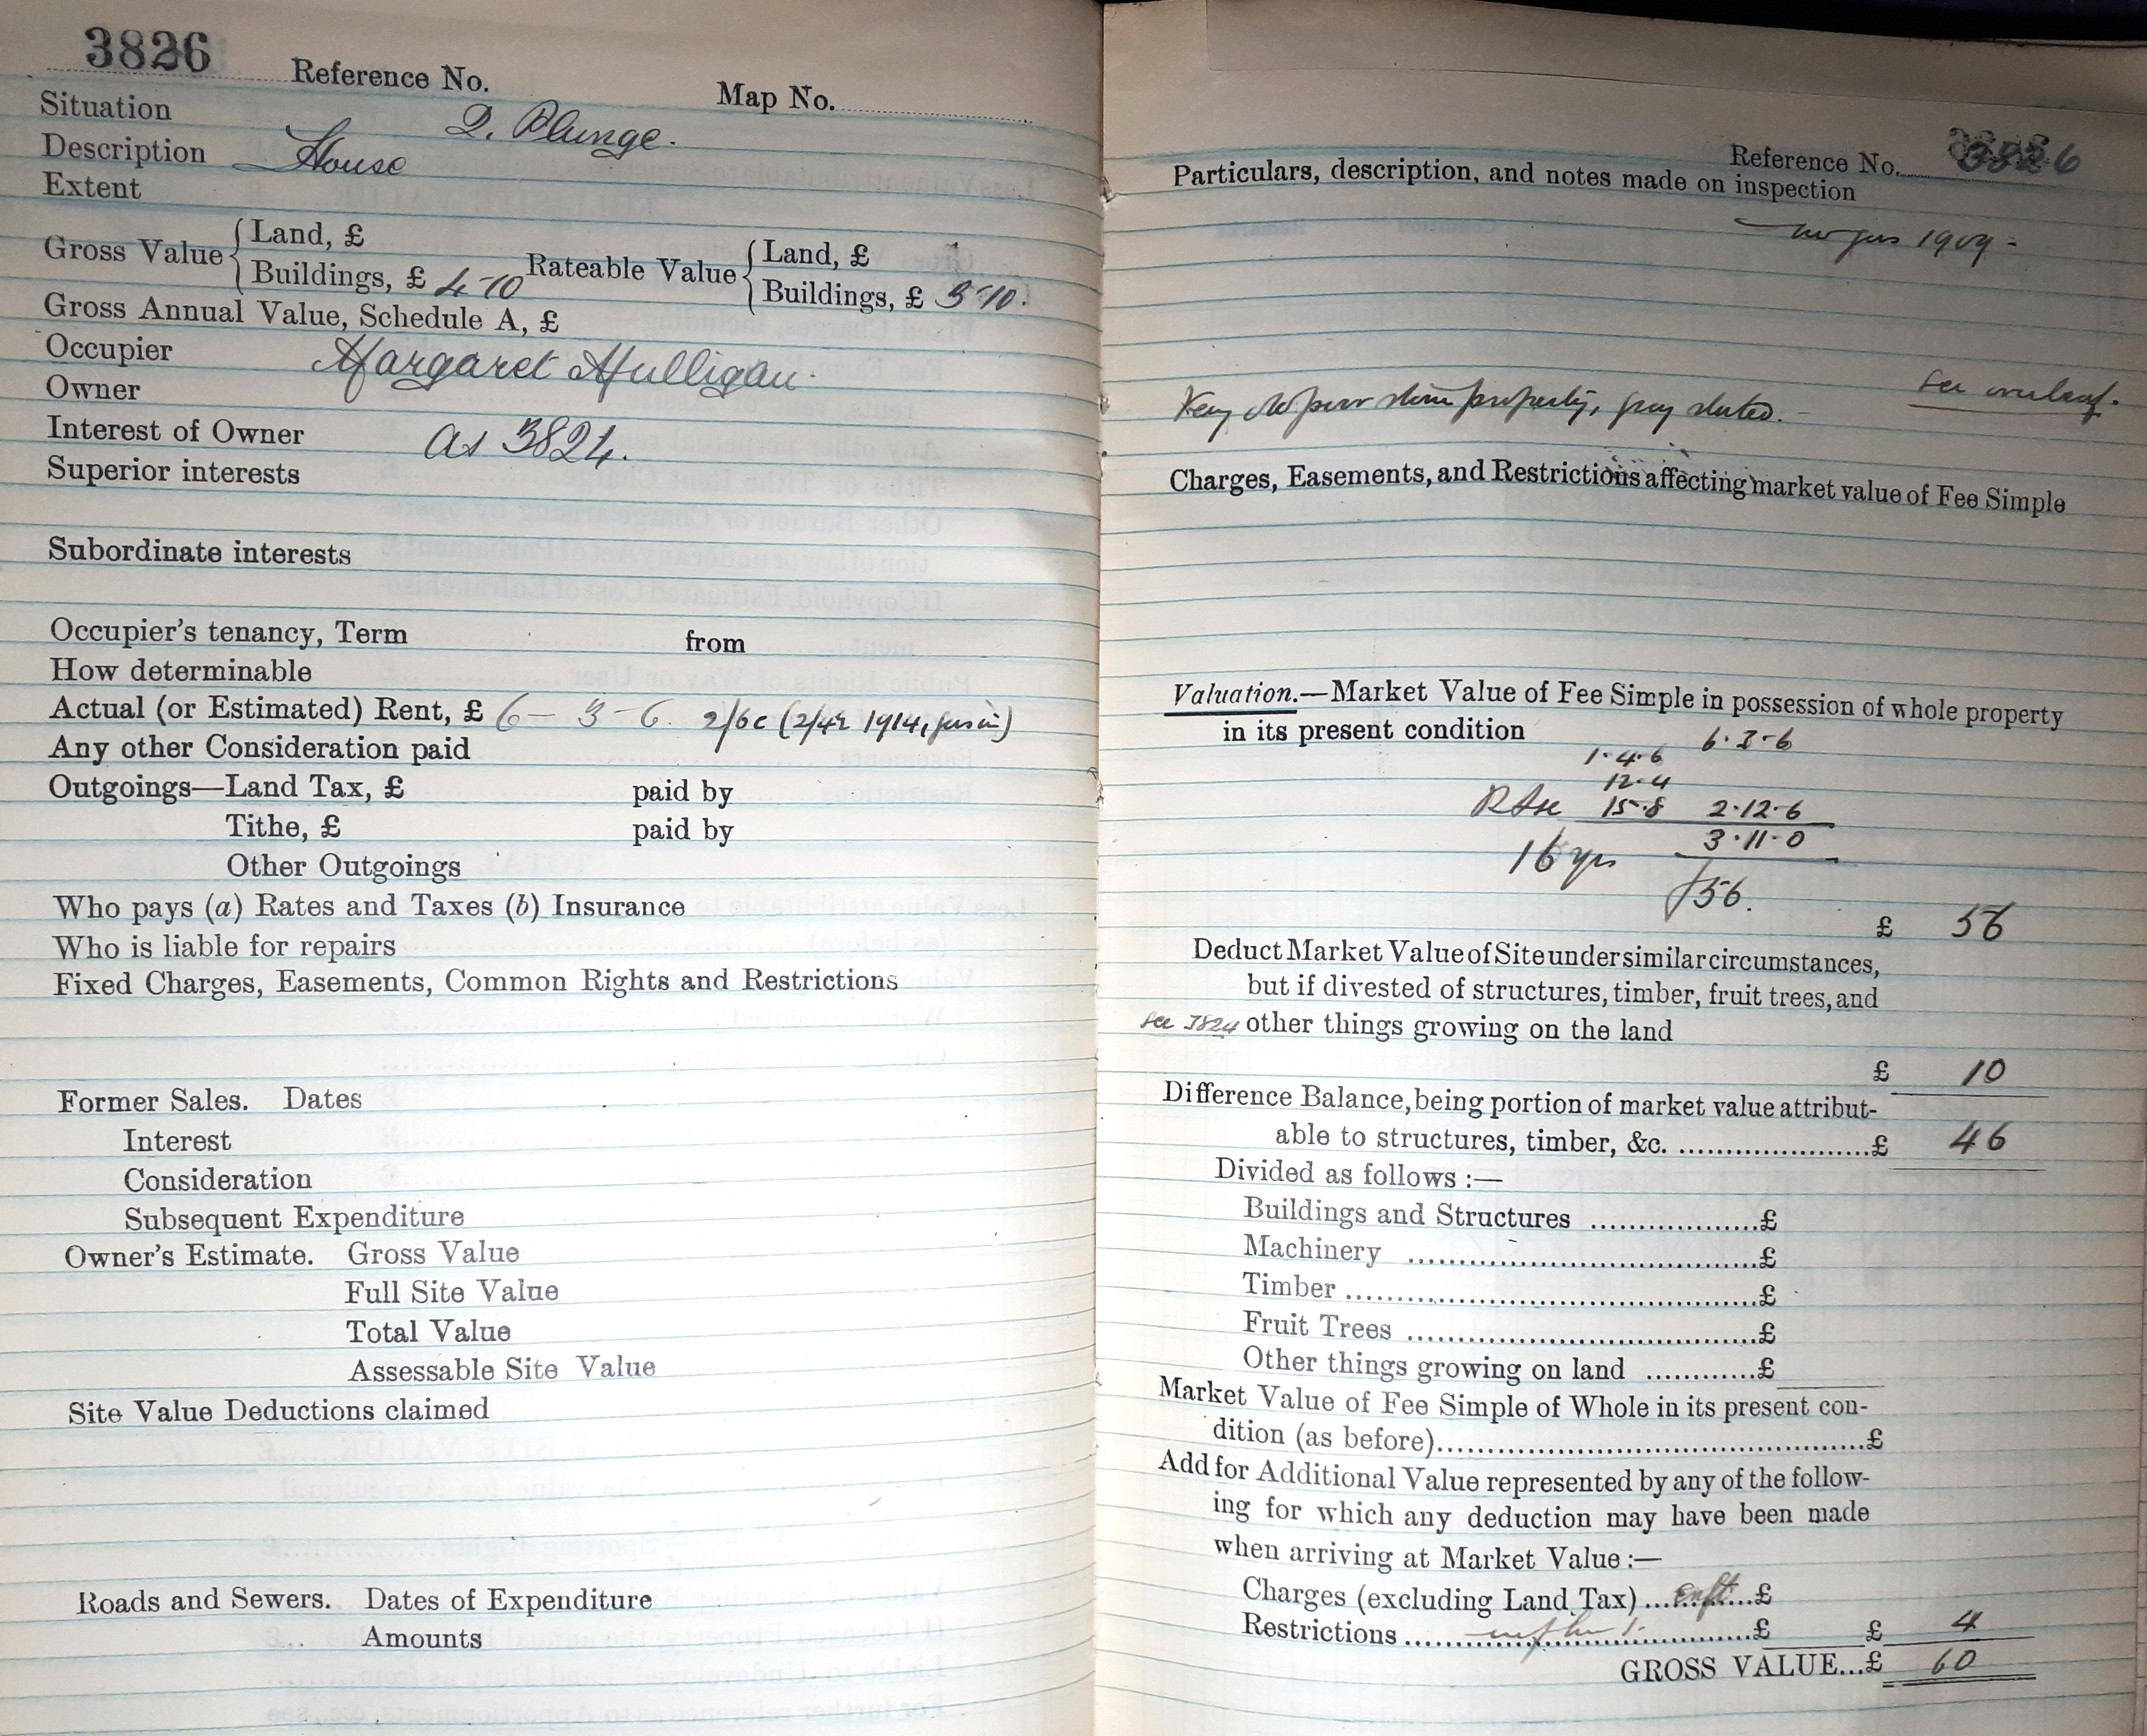 3826 Reference No. Map No.
Situation 2. Blunge.
Description House
Extent
Gross Value { Land, £
Buildings, £ 4-10 Rateable Value { Land, £
Buildings, £ 3-10.
Gross Annual Value, Schedule A, £
Occupier Margaret Mulligan.
Owner
Interest of Owner as 3824.
Superior interests
Subordinate interests
Occupier's tenancy, Term from
How determinable
Actual (or Estimated) Rent, £ 6-3-6. 2/6c (2/4½ 1914,
Any other Consideration paid
Outgoings—Land Tax, £ paid by
Tithe, £ paid by
Other Outgoings
Who pays (a) Rates and Taxes (b) Insurance
Who is liable for repairs
Fixed Charges, Easements, Common Rights and Restrictions
Former Sales. Dates
Interest
Consideration
Subsequent Expenditure
Owner's Estimate. Gross Value
Full Site Value
Total Value
Assessable Site Value
Site Value Deductions claimed
Roads and Sewers. Dates of Expenditure
Amounts
Reference No. 3826
Particulars, description, and notes made on inspection
no gas 1909-
see overleaf.
Very old poor property, grey slated.-
Charges, Easements, and Restrictions affecting market value of Fee Simple
Valuation.—Market Value of Fee Simple in possession of whole property
in its present condition 6.3-6
1.4.6
12.4
15.8 2.12.6
3.11.0
16 yrs
£56.
£ 56
Deduct Market Value of Site under similar circumstances,
but if divested of structures, timber, fruit trees, and
see 3824 other things growing on the land
£ 10
Difference Balance, being portion of market value attribut-
able to structures, timber, &c. £ 46
Divided as follows :—
Buildings and Structures £
Machinery £
Timber £
Fruit Trees £
Other things growing on land £
Market Value of Fee Simple of Whole in its present con-
dition (as before) £
Add for Additional Value represented by any of the follow-
ing for which any deduction may have been made
when arriving at Market Value :—
Charges (excluding Land Tax) enft. £
Restrictions £ £ 4
GROSS VALUE...£ 60